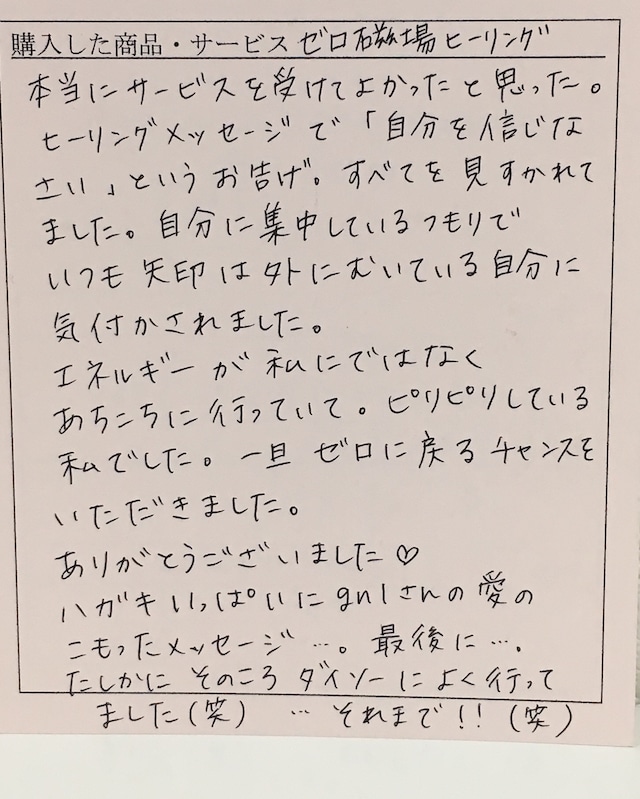 購入した商品・サービス ゼロ磁場ヒーリング
本当にサービスを受けてよかったと思った。
ヒーリングメッセージで「自分を信じな
さい」というお告げ。すべてを見すかれて
ました。自分に集中しているつもりで
いつも矢印は外にむいている自分に
気付かされました。
エネルギーが私にではなく
あちこちに行っていて。ピリピリしている
私でした。一旦ゼロに戻るチャンスを
いただきました。
ありがとうございました♡
ハガキいっぱいにgnlさんの愛の
こもったメッセージ…。最後に…．
たしかにそのころダイソーによく行って
ました（笑） …それまで！！（笑）